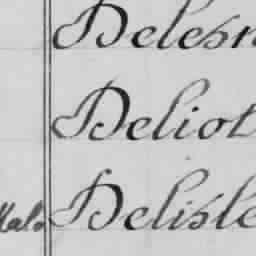 Delesn
Deliot
Malo Delisle